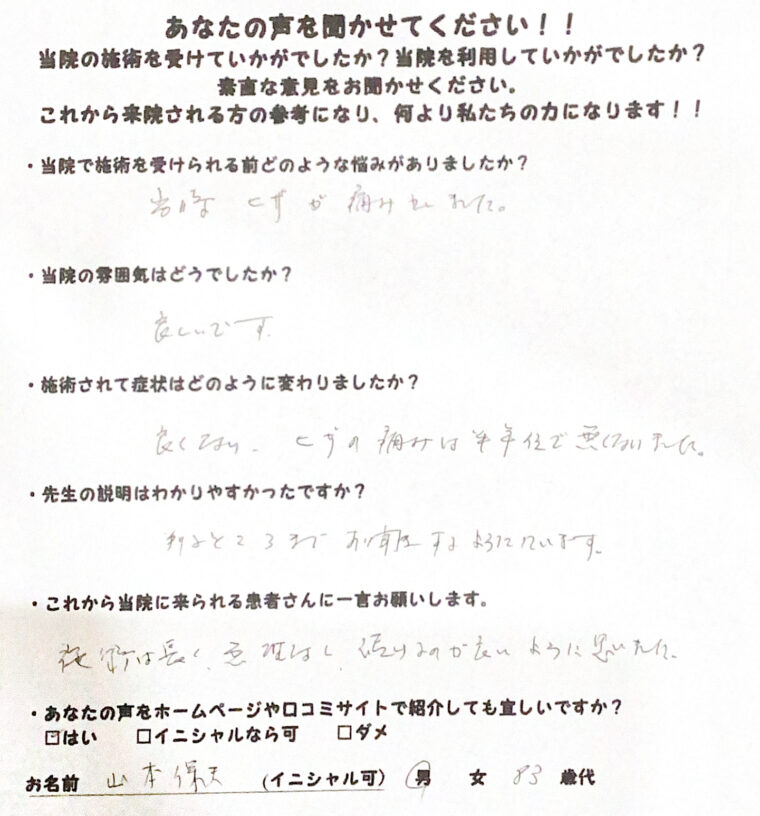 あなたの声を聞かせてください!!
当院の施術を受けていかがでしたか?当院を利用していかがでしたか?
素直な意見をお聞かせください。
これから来院される方の参考になり、何より私たちの力になります!!
・当院で施術を受けられる前どのような悩みがありましたか?
当時 ヒザが痛みました。
・当院の雰囲気はどうでしたか?
良いです。
・施術されて症状はどのように変わりましたか?
良くなり、ヒザの痛みは半年位で
・先生の説明はわかりやすかったですか?
ところまで ようにしています。
・これから当院に来られる患者さんに一言お願いします。
施術は長く、無理なし、続けるのが良いように思いました。
・あなたの声をホームページや口コミサイトで紹介しても宜しいですか?
☑はい □イニシャルなら可 □ダメ
お名前 山本 (イニシャル可) 男 女 83 歳代